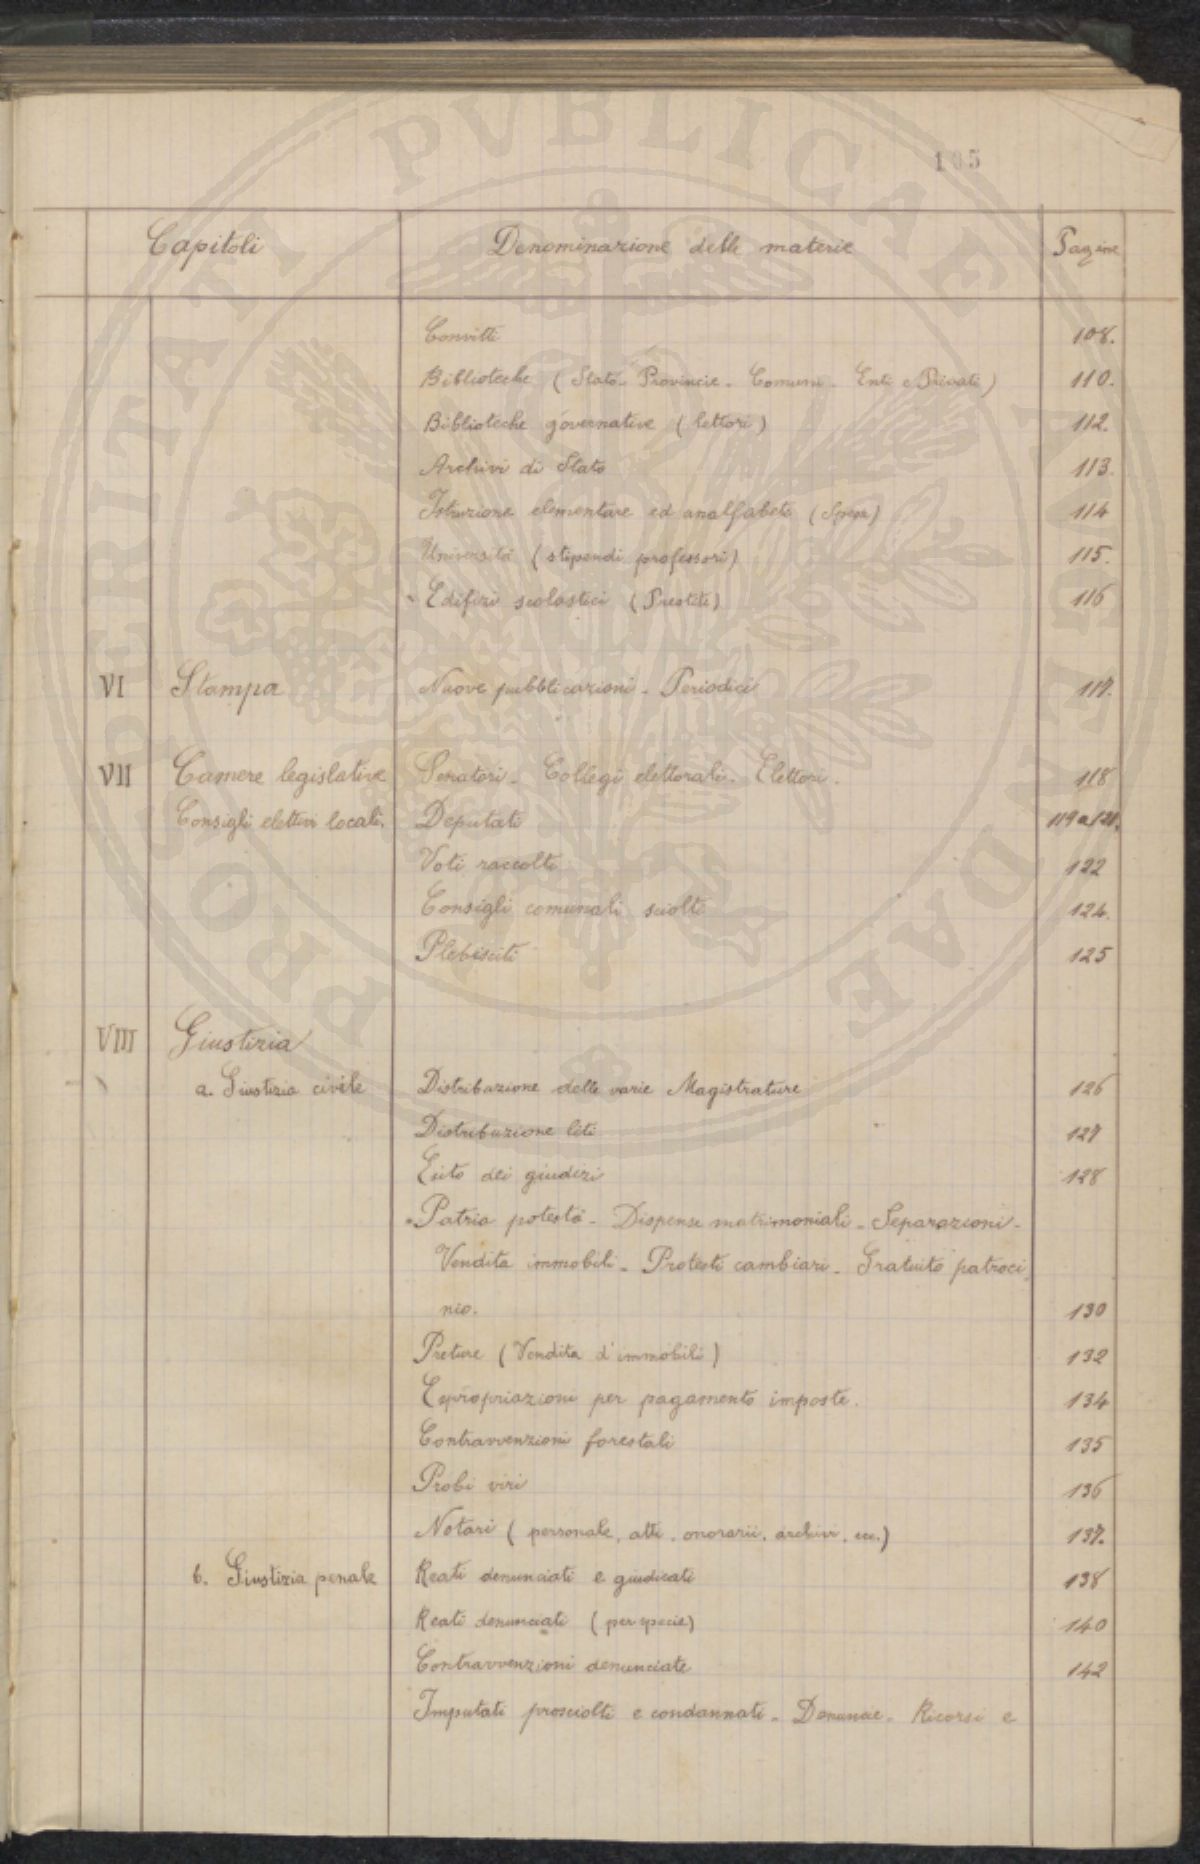 105
Capitoli Denominazione delle materie Pagine
Convitti 108.
Biblioteche (Stato - Provincie - Comuni - Enti e Privati) 110.
Biblioteche governative (lettori) 112.
Archivi di Stato 113.
Istruzione elementare ed analfabeti (Spesa) 114
Università (stipendi professori) 115.
Edifizi scolastici (Prestiti) 116
VI Stampa Nuove pubblicazioni - Periodici 117.
VII Camere legislative Senatori - Collegi elettorali - Elettori. 118
Consigli elettivi locali. Deputati 119 a 121.
Voti raccolti 122
Consigli comunali sciolti 124.
Plebisciti 125
VIII Giustizia
a. Giustizia civile Distribuzione delle varie Magistrature 126
Distribuzione liti 127
Esito dei giudizi 128
Patria potestà - Dispense matrimoniali - Separazioni -
Vendita immobili - Protesti cambiari - Gratuito patroci-
nio. 130
Preture (Vendita d'immobili) 132
Espropriazioni per pagamento imposte. 134
Contravvenzioni forestali 135
Probi viri 136
Notari (personale, atti, onorarii, archivi, ecc.) 137.
b. Giustizia penale Reati denunciati e giudicati 138
Reati denunciati (per specie) 140
Contravvenzioni denunciate 142
Imputati prosciolti e condannati - Denuncie - Ricorsi e
PROSPERITATI PUBLICAE AUGENDAE